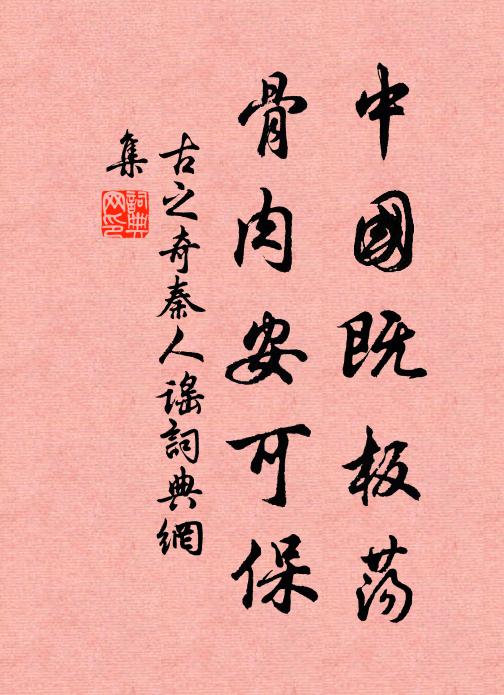 中國既板荡
骨肉安可保
古之奇秦人謠詞典網
集
詞典
网印